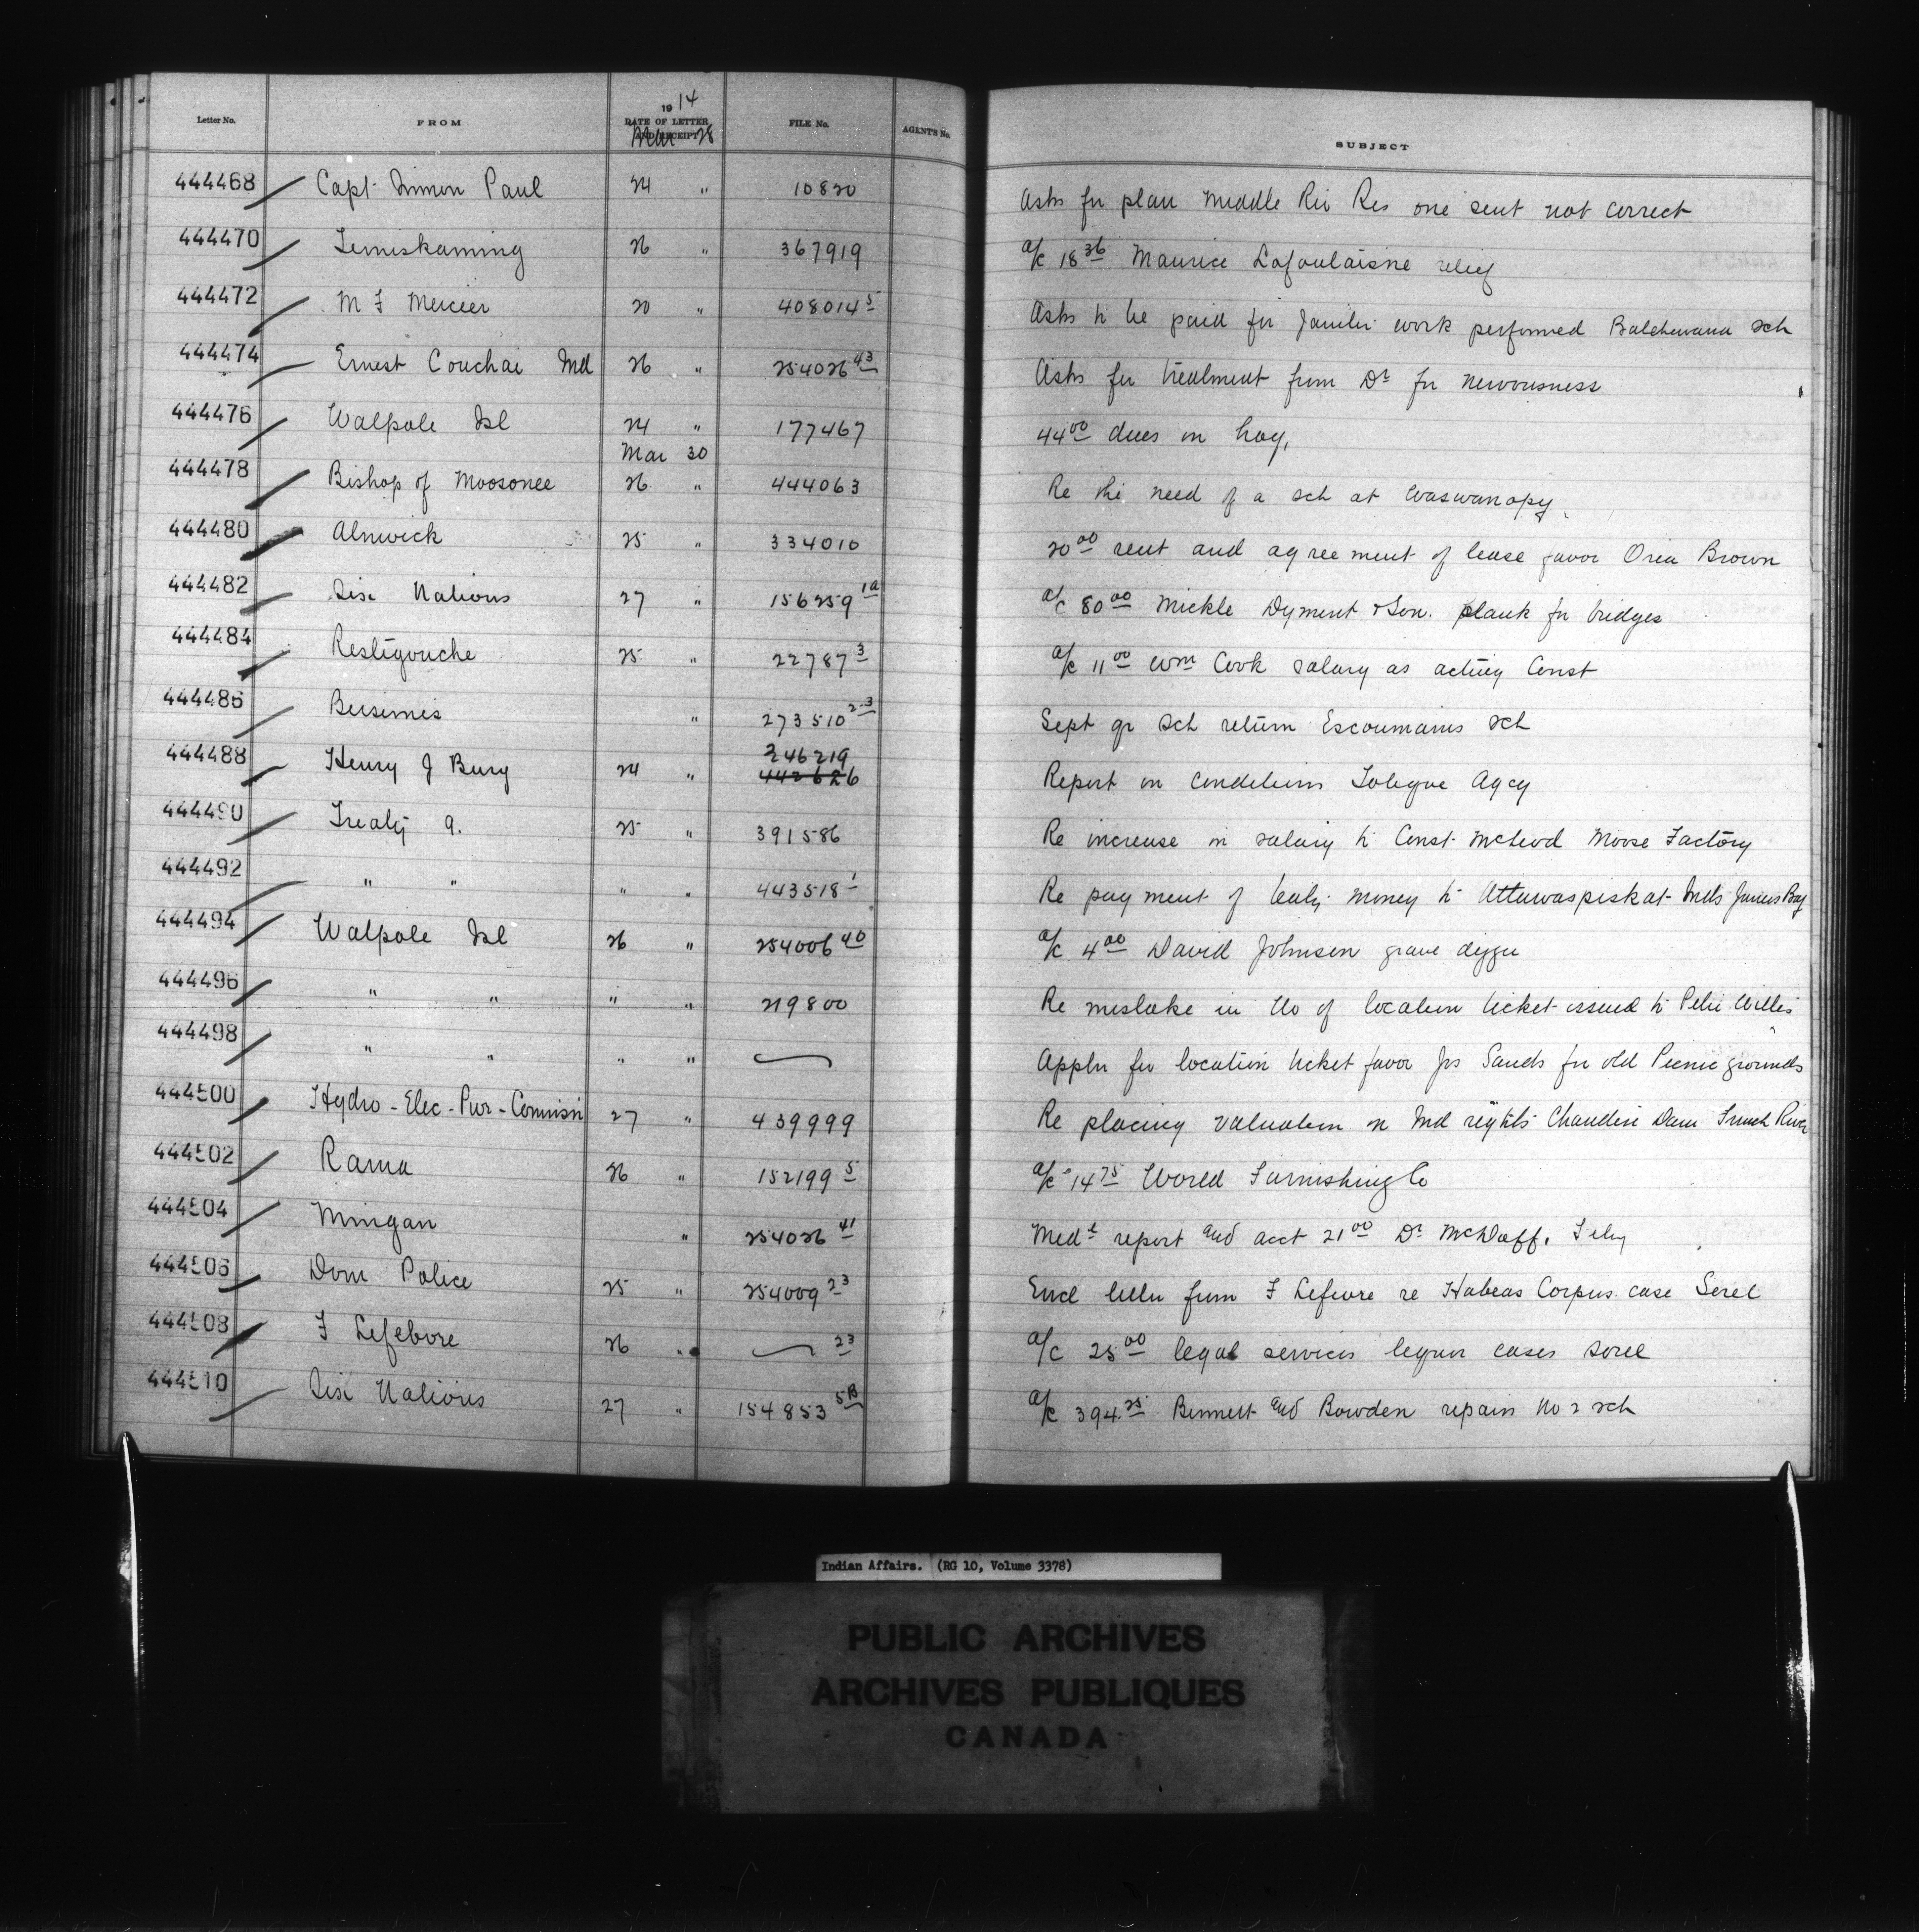 Letter No. FROM 19 14 DATE OF LETTER AND RECEIPT FILE No. AGENT'S No. SUBJECT
Mar 28
444468 Capt. Simon Paul 24 " 10820 Asks for plan Middle Riv Res one sent not correct
444470 Temiskaming 26 " 367919 a/c 18 36 Maurice relief
444472 M F Mercier 20 " 408014 5 Asks to be paid for work performed Batchewana sch
444474 Ernest Couchai Ind 26 " 254026 43 Asks for treatment from Dr for nervousness
444476 Walpole Isl 24 " 177467 44 00 dues on hay,
Mar 30
444478 Bishop of Moosonee 26 " 444063 Re the need of a sch at Waswanopy
444480 Alnwick 25 " 334010 20 00 rent and agreement of lease favor Brown
444482 Six Nations 27 " 156259 1a a/c 80 00 Mickle Dyment & Son. plank for bridges
444484 Restigouche 25 " 22787 3 a/c 11 00 Wm Cook salary as acting Const
444486 Bersimis " 273510 2-3 Sept qr sch return Escoumains sch
444488 Henry J Bury 24 " 246219 442626 Report on conditions Tobique Agcy
444490 Treaty 9. 25 " 391586 Re increase in salary to Const. McLeod Moose Factory
444492 " " " " 443518 1 Re payment of treaty money to Attawaspiskat Inds James Bay
444494 Walpole Isl 26 " 254006 40 a/c 4 00 David Johnson grave digger
444496 " " " " 219800 Re mistake in No of location ticket issued to Willis
444498 " " " " Appln for location ticket favor Jos Sands for old Picnic grounds
444500 Hydro-Elec-Pwr-Commissn 27 " 439999 Re placing valuation on Ind rights Chaudiere Dam French River
444502 Rama 26 " 152199 5 a/c 14 75 World Furnishing Co
444504 Mingan " 254026 41 Medl report and acct 21 00 Dr McDuff. Feby
444506 Dom Police 25 " 254009 23 Encl letter from F Lefevre re Habeas Corpus case Sorel
444508 F Lefebvre 26 " 23 a/c 25 00 legal services liquor cases Sorel
444510 Six Nations 27 " 154853 5B a/c 394.25 Bennett and Bowden repairs No 2 sch
Indian Affairs. (RG 10, Volume 3378)
PUBLIC ARCHIVES
ARCHIVES PUBLIQUES
CANADA